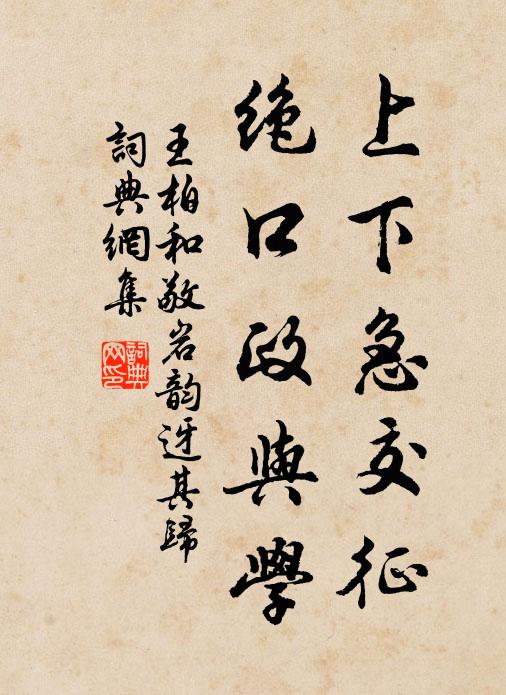 上下急交征
绝口政與學
王柏和敬岩韵迓其歸
詞典網集
詞典網印